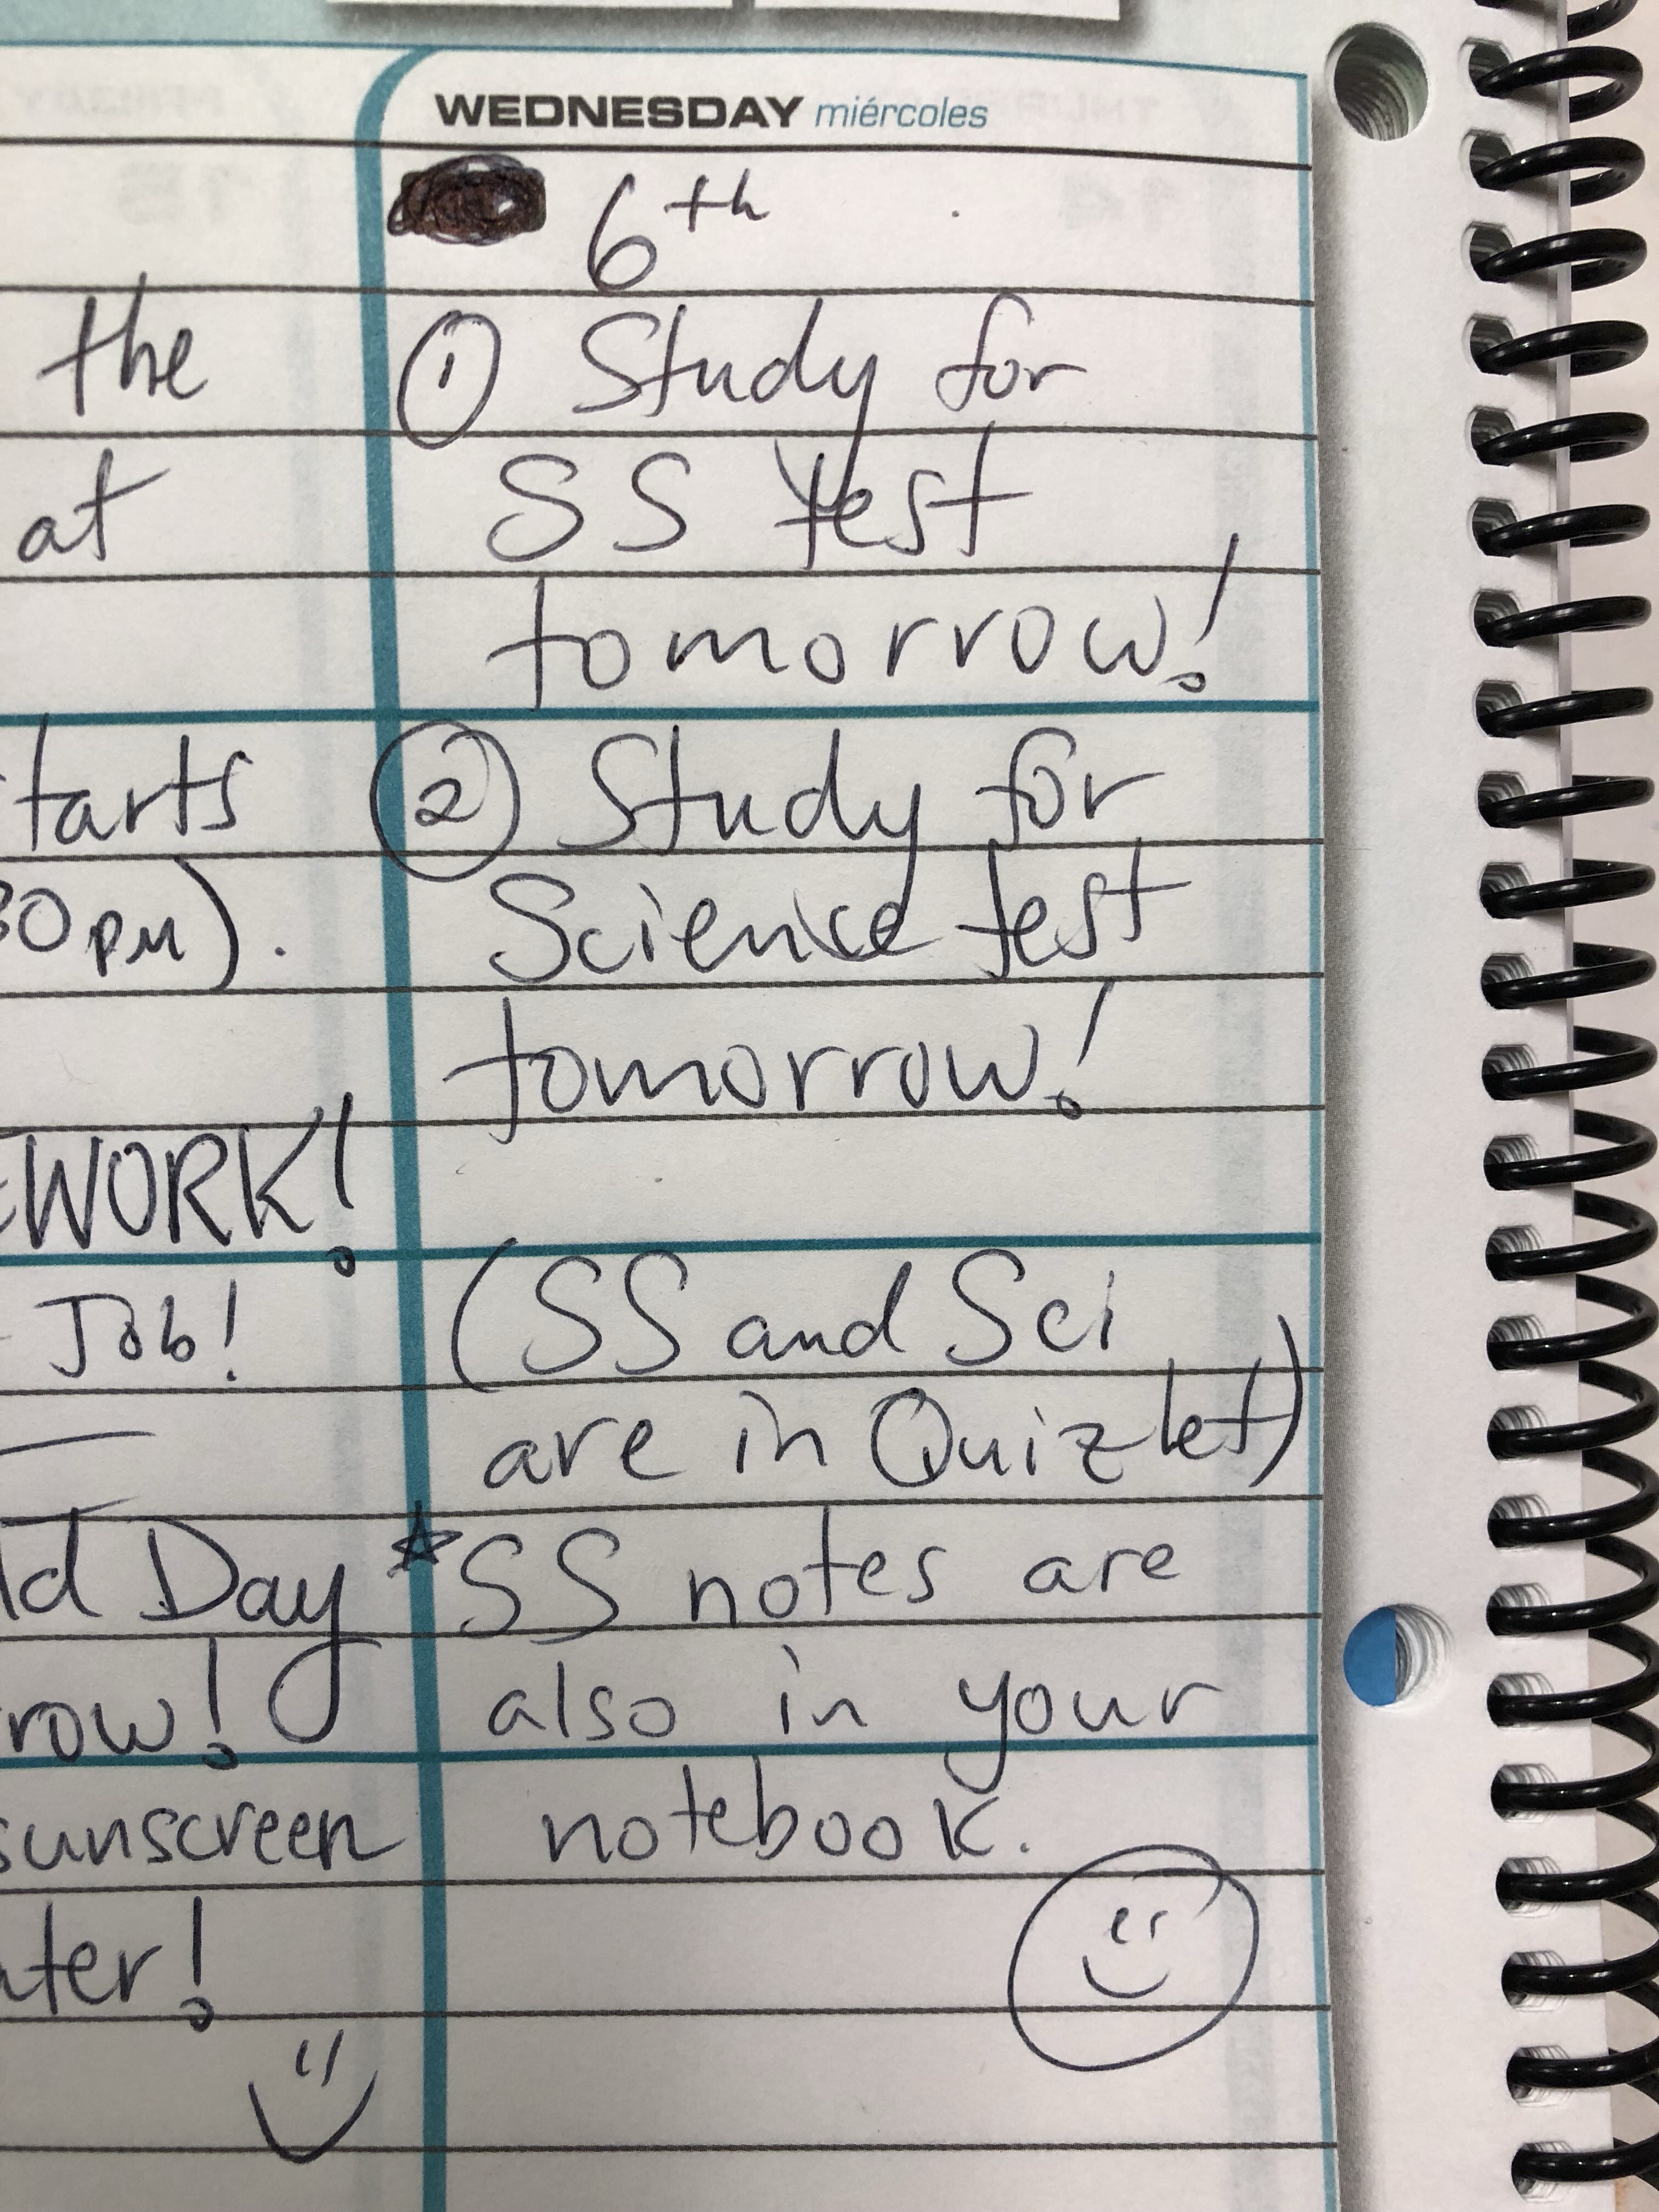 WEDNESDAY miércoles
6th
① Study for
SS test
tomorrow!
② Study for
Science test
tomorrow!
(SS and Sci
are in Quizlet)
*SS notes are
also in your
notebook.
the
at
tarts
30pm).
EWORK!
Job!
ld Day
row!
sunscreen
ter!